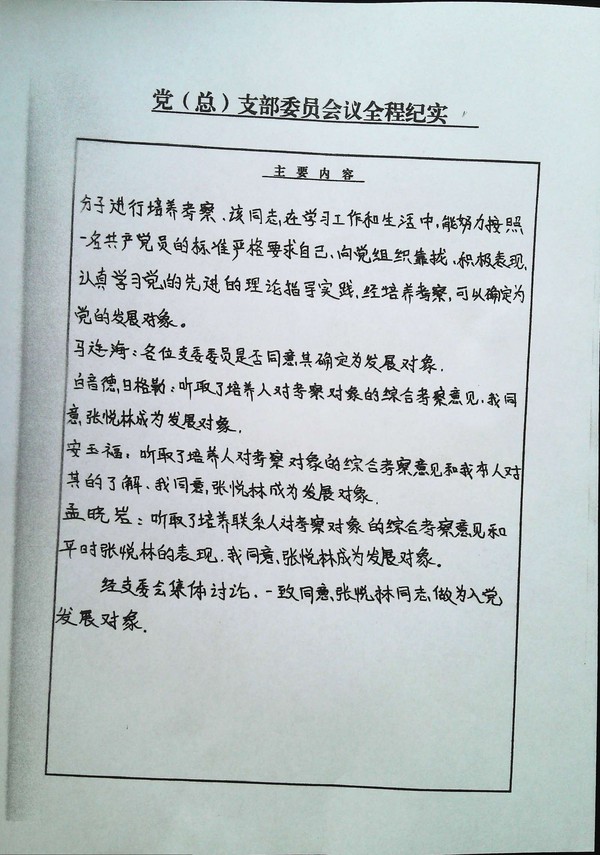 党（总）支部委员会议全程纪实
主要内容
分子进行培养考察、该同志在学习工作和生活中,能努力按照
一名共产党员的标准严格要求自己、向党组织靠拢、积极表现,
认真学习党的先进的理论指导实践,经培养考察,可以确定为
党的发展对象。
马连海:各位支委委员是否同意其确定为发展对象.
白音德日格勒:听取了培养人对考察对象的综合考察意见.我同
意张悦林成为发展对象.
安玉福:听取了培养人对考察对象的综合考察意见和我本人对
其的了解.我同意张悦林成为发展对象.
孟晓岩:听取了培养联系人对考察对象的综合考察意见和
平时张悦林的表现.我同意张悦林成为发展对象。
经支委会集体讨论.一致同意张悦林同志做为入党
发展对象.